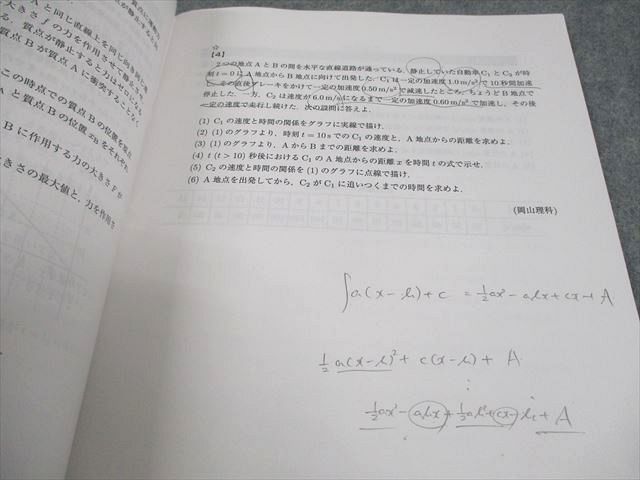 Aと同じ直線上を同じ向き
大きさ f の力を作用させて静止
する.質点が静止すると力はゼロ
質点Bが質点Aに衝突すること
この時点での質点Bの位置を原点
Aと質点Bの位置 xB をそれぞれ
Bに作用する力の大きさ F が
きさの最大値と,力を作用さ
☆
[4]
2つの地点AとBの間を水平な直線道路が通っている.静止していた自動車C1とC2が時
刻 t=0 にA地点からB地点に向けて出発した.C1は一定の加速度 1.0 m/s² で 10 秒間加速
し,その直後ブレーキをかけて一定の加速度 0.50 m/s² で減速したところ,ちょうどB地点で
停止した.一方,C2は速度が 6.0 m/s になるまで一定の加速度 0.60 m/s² で加速し,その後
一定の速度で走行し続けた.次の設問に答えよ.
(1) C1の速度と時間の関係をグラフに実線で描け.
(2) (1)のグラフより,時刻 t=10 s でのC1の速度と,A地点からの距離を求めよ.
(3) (1)のグラフより,AからBまでの距離を求めよ.
(4) t (t>10) 秒後におけるC1のA地点からの距離 x を時間 t の式で示せ.
(5) C2の速度と時間の関係を(1)のグラフに点線で描け.
(6) A地点を出発してから,C2がC1に追いつくまでの時間を求めよ.
(岡山理科)
∫a(x-b)+c = 1/2ax²-abx+cx+A
1/2 a(x-b)²+c(x-b)+A
1/2ax²-abx+1/2ab²+cx-bc+A